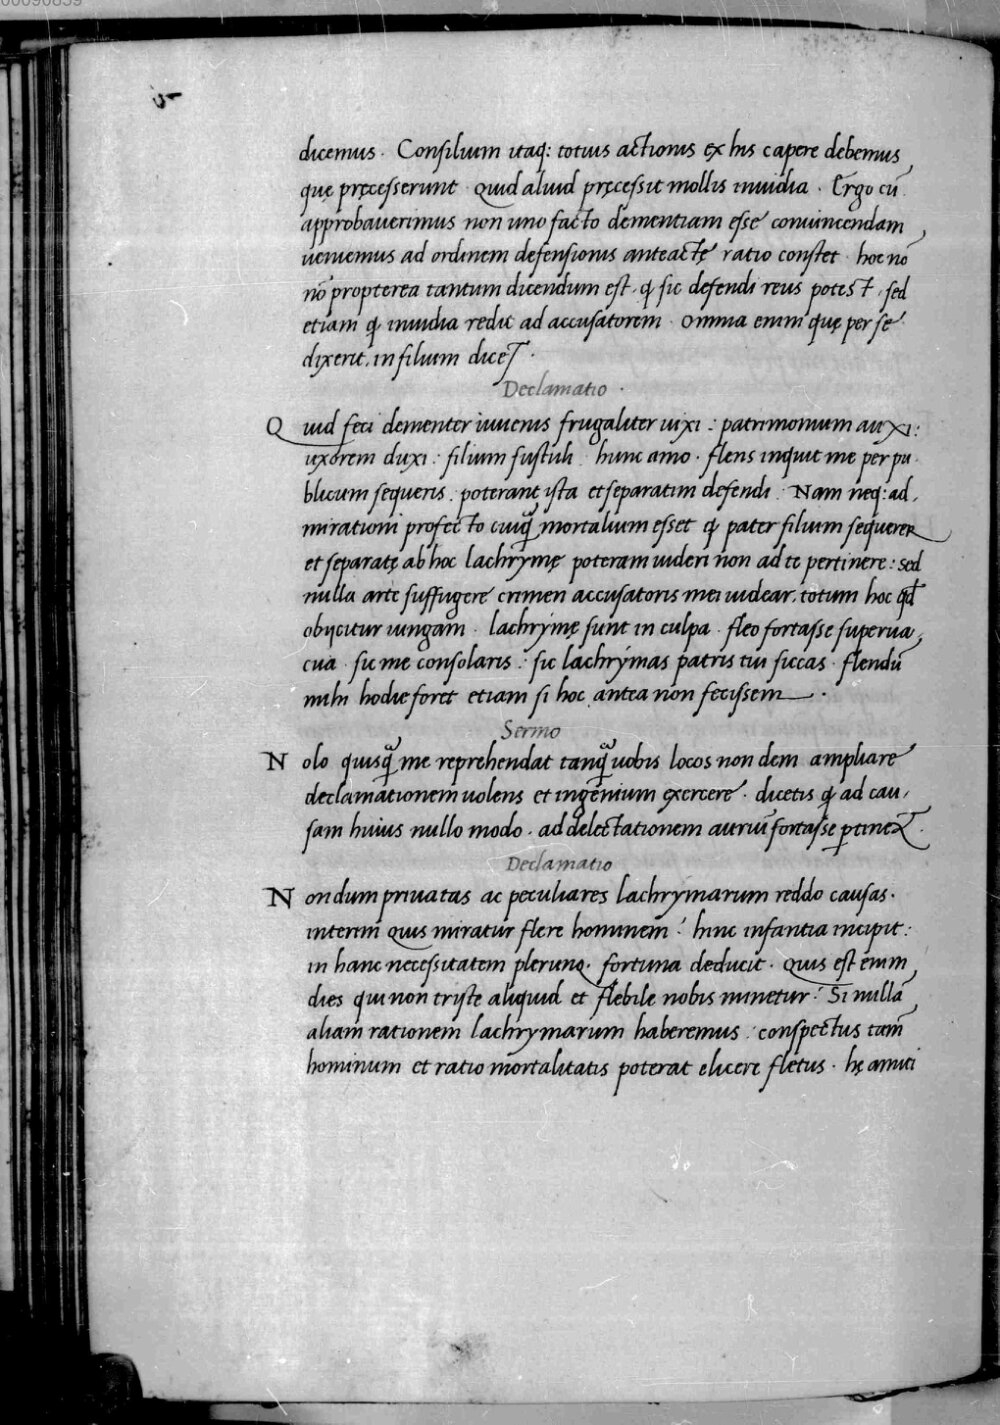 dicemus · Consilium itaq: totius actionis ex his capere debemus,
quę pręcesserunt · quid aliud pręcessit mollis inuidia · Ergo cū
approbauerimus non uno facto dementiam esse conuincendam,
ueniemus ad ordinem defensionis anteactę ratio constet · hoc nō
nō propterea tantum dicendum est, ꝙ sic defendi reus potest, sed
etiam ꝙ inuidia redit ad accusatorem · omnia enim quę per se
dixerit, in filium diceT ·
Declamatio ·
Quid feci dementer iuuenis frugaliter uixi : patrimonium auxi :
uxorem duxi : filium sustuli · hunc amo · flens inquit me per pu
blicum sequeris . poterant ista et separatim defendi · Nam neq: ad,
mirationi profecto cuiq̃ mortalium esset ꝙ pater filium sequerer
et separatę ab hoc lachrymę poteram uideri non ad te pertinere : sed
nulla arte suffugere crimen accusatoris mei uidear, totum hoc qđ
obijcitur iungam · lachrymę sunt in culpa · fleo fortasse superua,
cua · sic me consolaris : sic lachrymas patris tui siccas · flendū
mihi hodie foret etiam si hoc antea non fecissem ·
Sermo
Nolo quisq̃ me reprehendat tanq̃ uobis locos non dem ampliare
declamationem uolens et ingenium exercere · dicetis ꝙ ad cau,
sam huius nullo modo · ad delectationem auriū fortasse ꝑtineT ·
Declamatio
Nondum priuatas ac peculiares lachrymarum reddo causas ·
interim quis miratur flere hominem : hinc infantia incipit :
in hanc necessitatem plerunq · fortuna deducit · quis est enim,
dies qui non triste aliquid et flebile nobis minetur : Si nullā
aliam rationem lachrymarum haberemus : conspectus tam̄
hominum et ratio mortalitatis poterat elicere fletus · hę amici